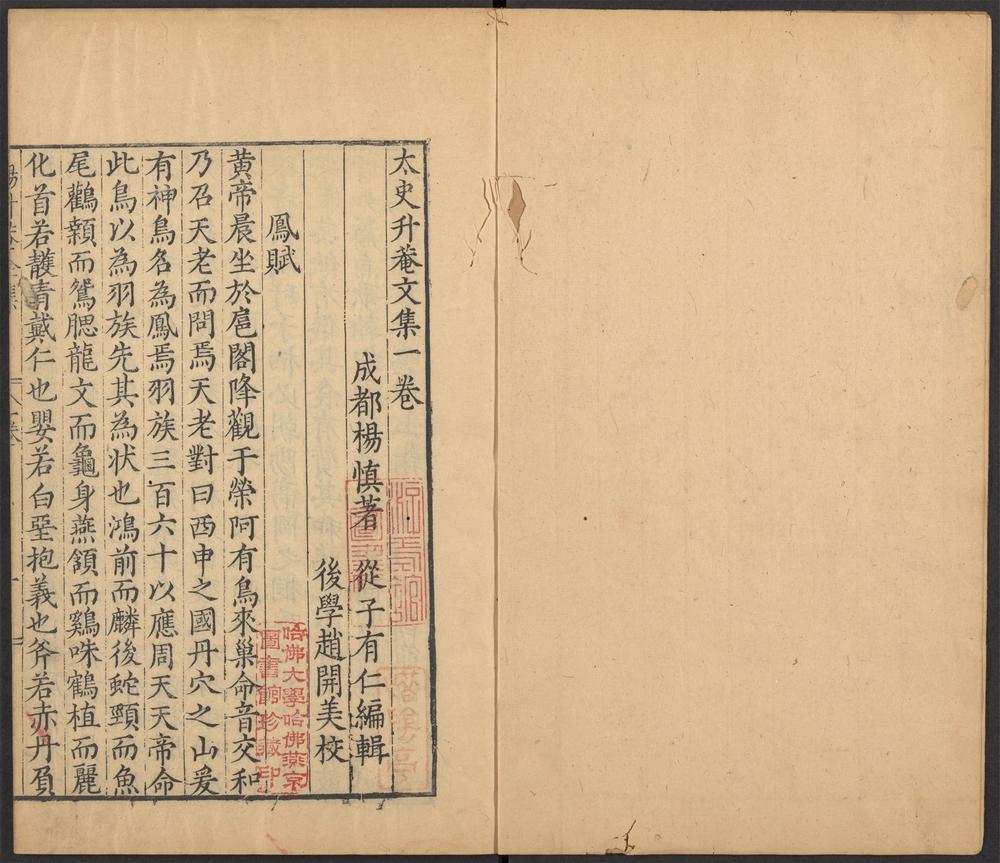 太史升菴文集一卷
成都楊慎著 從子有仁編輯
後學趙開美校
鳳賦
黃帝晨坐於扈閣降觀于榮阿有鳥來巢命音交和
乃召天老而問焉天老對曰西申之國丹穴之山爰
有神鳥名為鳳焉羽族三百六十以應周天天帝命
此鳥以為羽族先其為状也鴻前而麟後蛇頸而魚
尾鸛顙而鴛腮龍文而龜身燕頷而鷄咮鶴植而麗
化首若䕶青戴仁也嬰若白堊抱義也斧若赤丹負
哈佛大學哈佛燕京
圖書館珍藏印